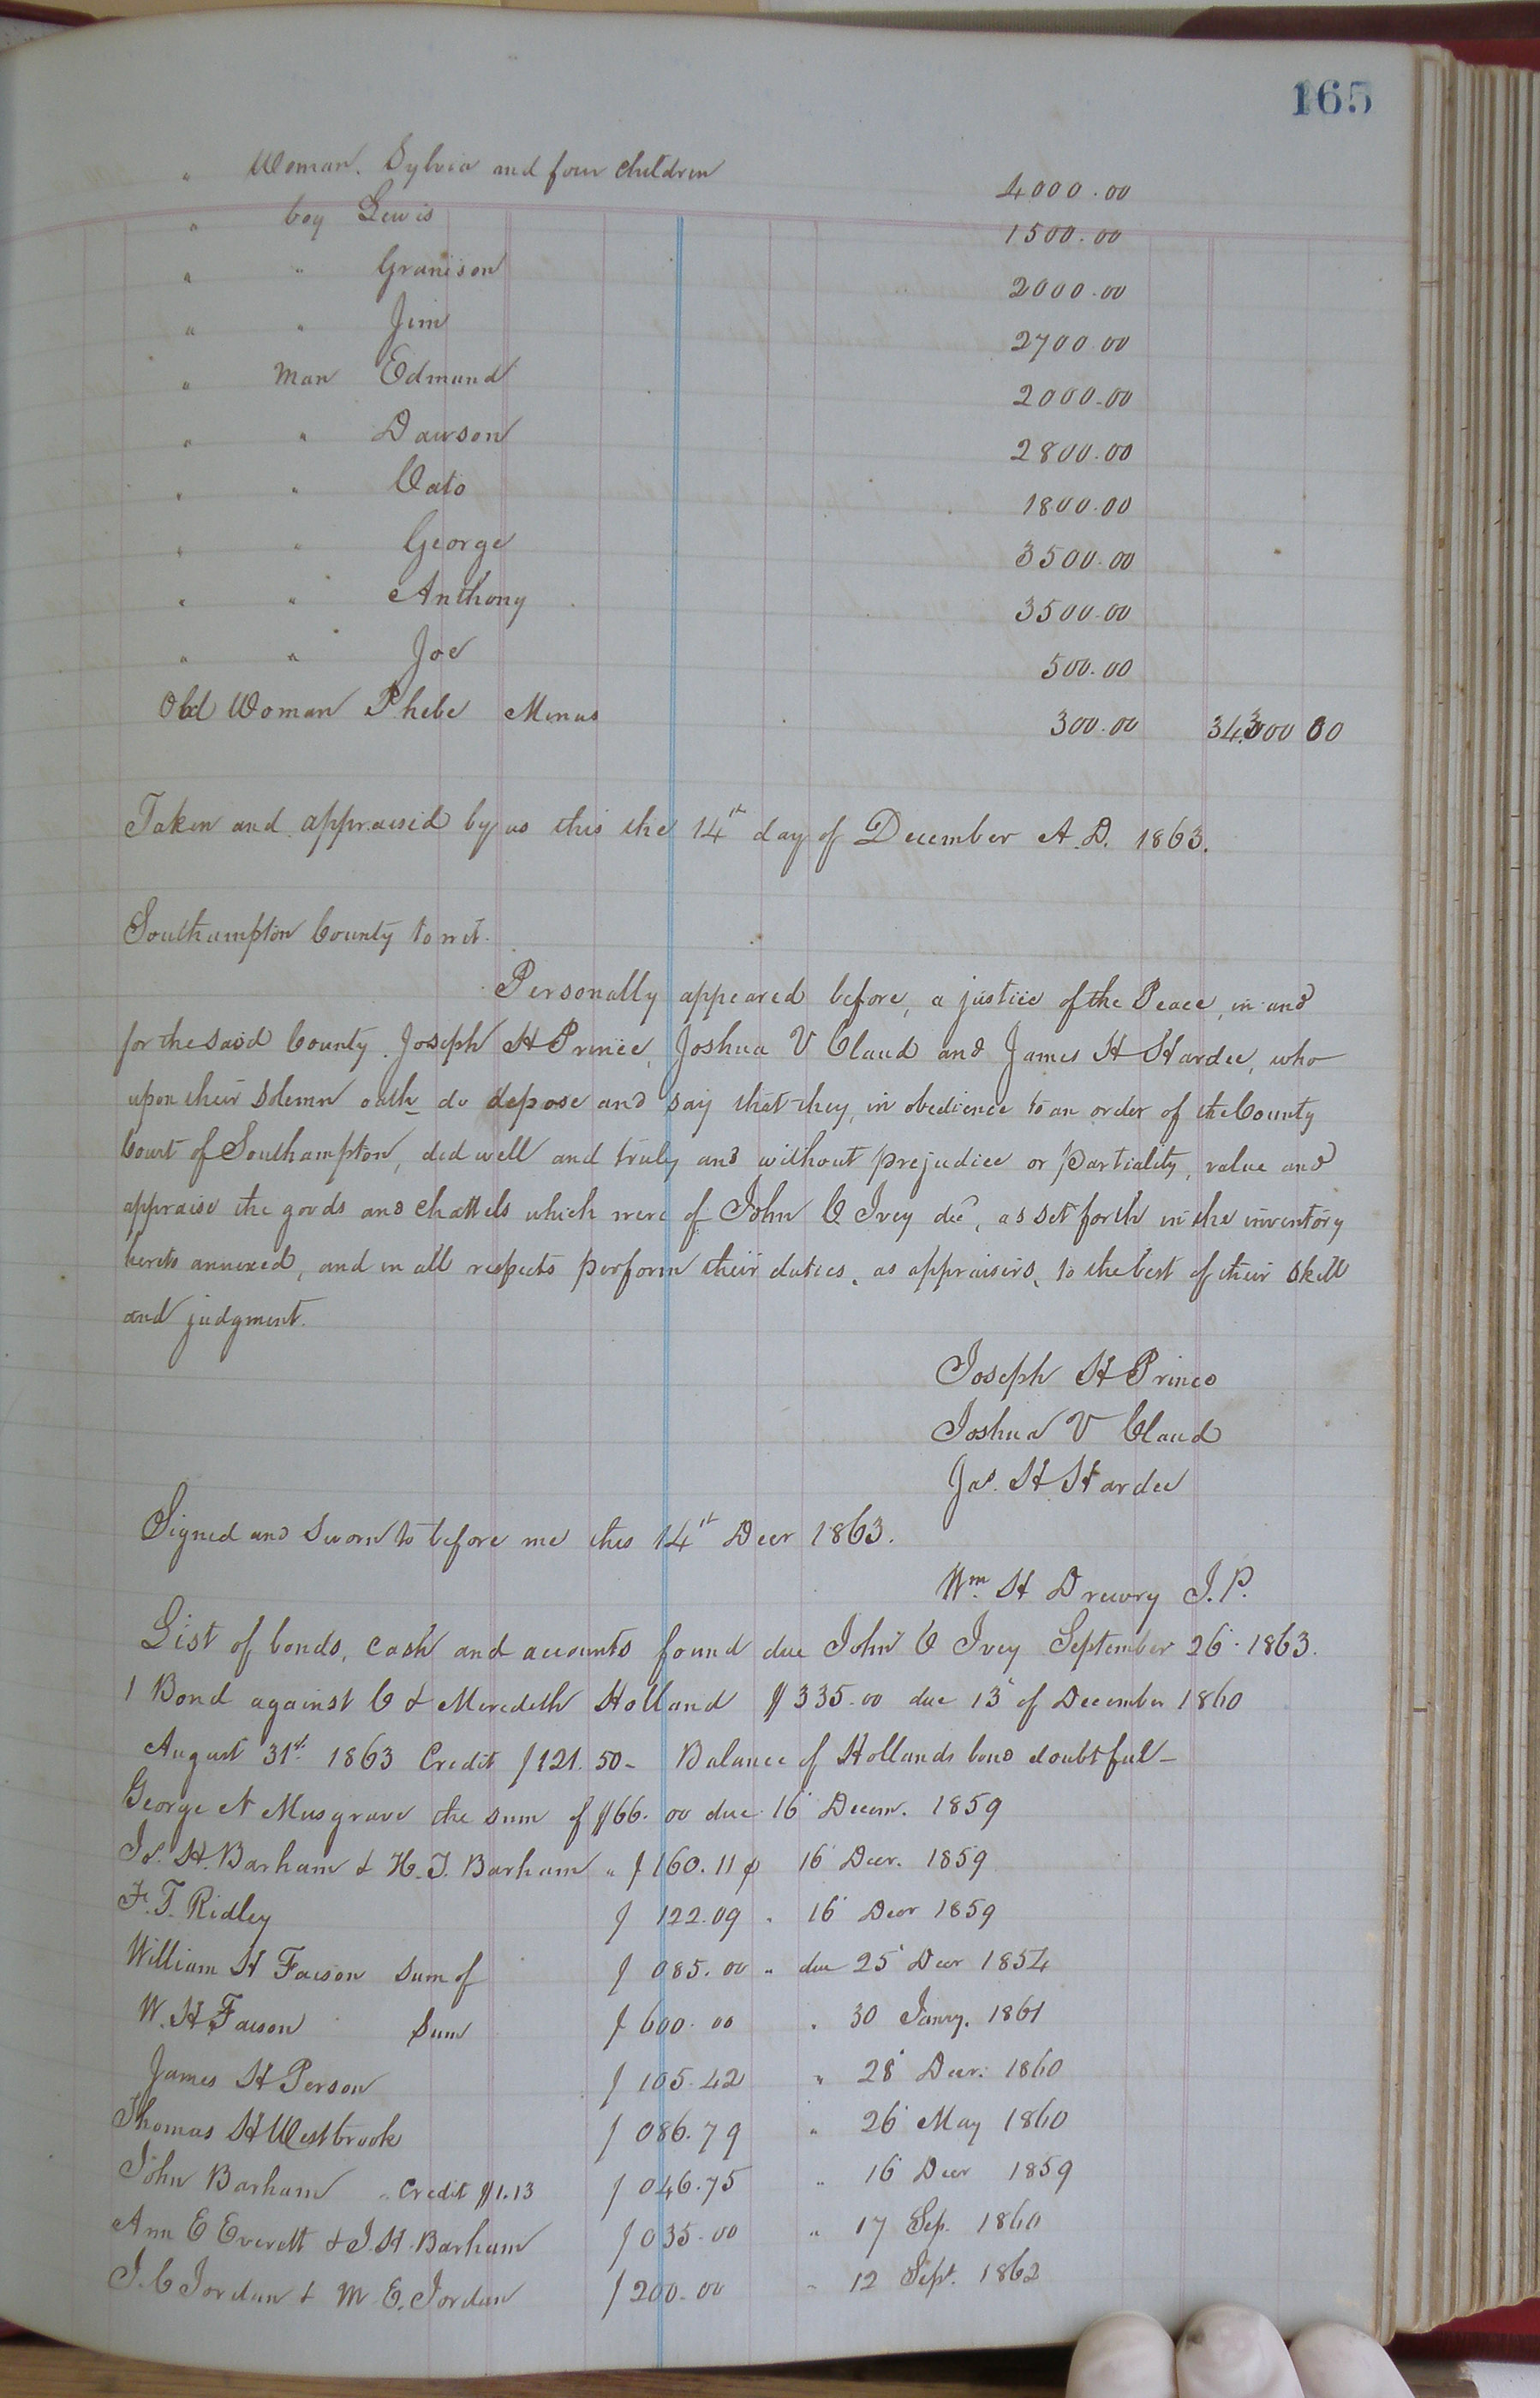 165
" Woman. Sylvia and four children 4000.00
" boy Lewis 1500.00
" " Granison 2000.00
" " Jim 2700.00
" Man Edmund 2000.00
" " Dawson 2800.00
" " Cato 1800.00
" " George 3500.00
" " Anthony 3500.00
" " Joe 500.00
Old Woman Phebe Minus 300.00 34300 00
Taken and appraised by us this the 14th day of December A.D. 1863.
Southampton County to wit.
Personally appeared before, a justice of the Peace, in and
for the said County. Joseph H Prince, Joshua V Claud and James H Hardee, who
upon their solemn oath do depose and say that they, in obedience to an order of the County
Court of Southampton, did well and truly and without prejudice or partiality, value and
appraise the goods and chattels which were of John C Ivey decd, as set forth in the inventory
hereto annexed, and in all respects perform their duties, as appraisers, to the best of their skill
and judgment.
Joseph H Prince
Joshua V Claud
Jas. H Hardee
Signed and Sworn to before me this 14th Decr 1863.
Wm. H Drewry J.P.
List of bonds, cash and accounts found due John C Ivey September 26 1863.
1 Bond against C & Meredith Holland $335.00 due 13 of December 1860
August 31st 1863 Credit $121.50 - Balance of Hollands bond doubtful -
George N Musgrave the sum of $66.00 due 16 Decem. 1859
Js. H. Barham & H. T. Barham " $160.11 16 Decr. 1859
F. T. Ridley $122.09 " 16 Decr 1859
William H Faison Sum of $085.00 " due 25 Decr 1854
W. H Faison Sum $600.00 " 30 Janry. 1861
James H Person $105.42 " 28 Decr. 1860
Thomas H Westbrook $086.79 " 26 May 1860
John Barham " Credit $1.13 $046.75 " 16 Decr 1859
Ann E Everett & J. H. Barham $035.00 " 17 Sep. 1860
J. C Jordan & M. E. Jordan $200.00 " 12 Sept. 1862